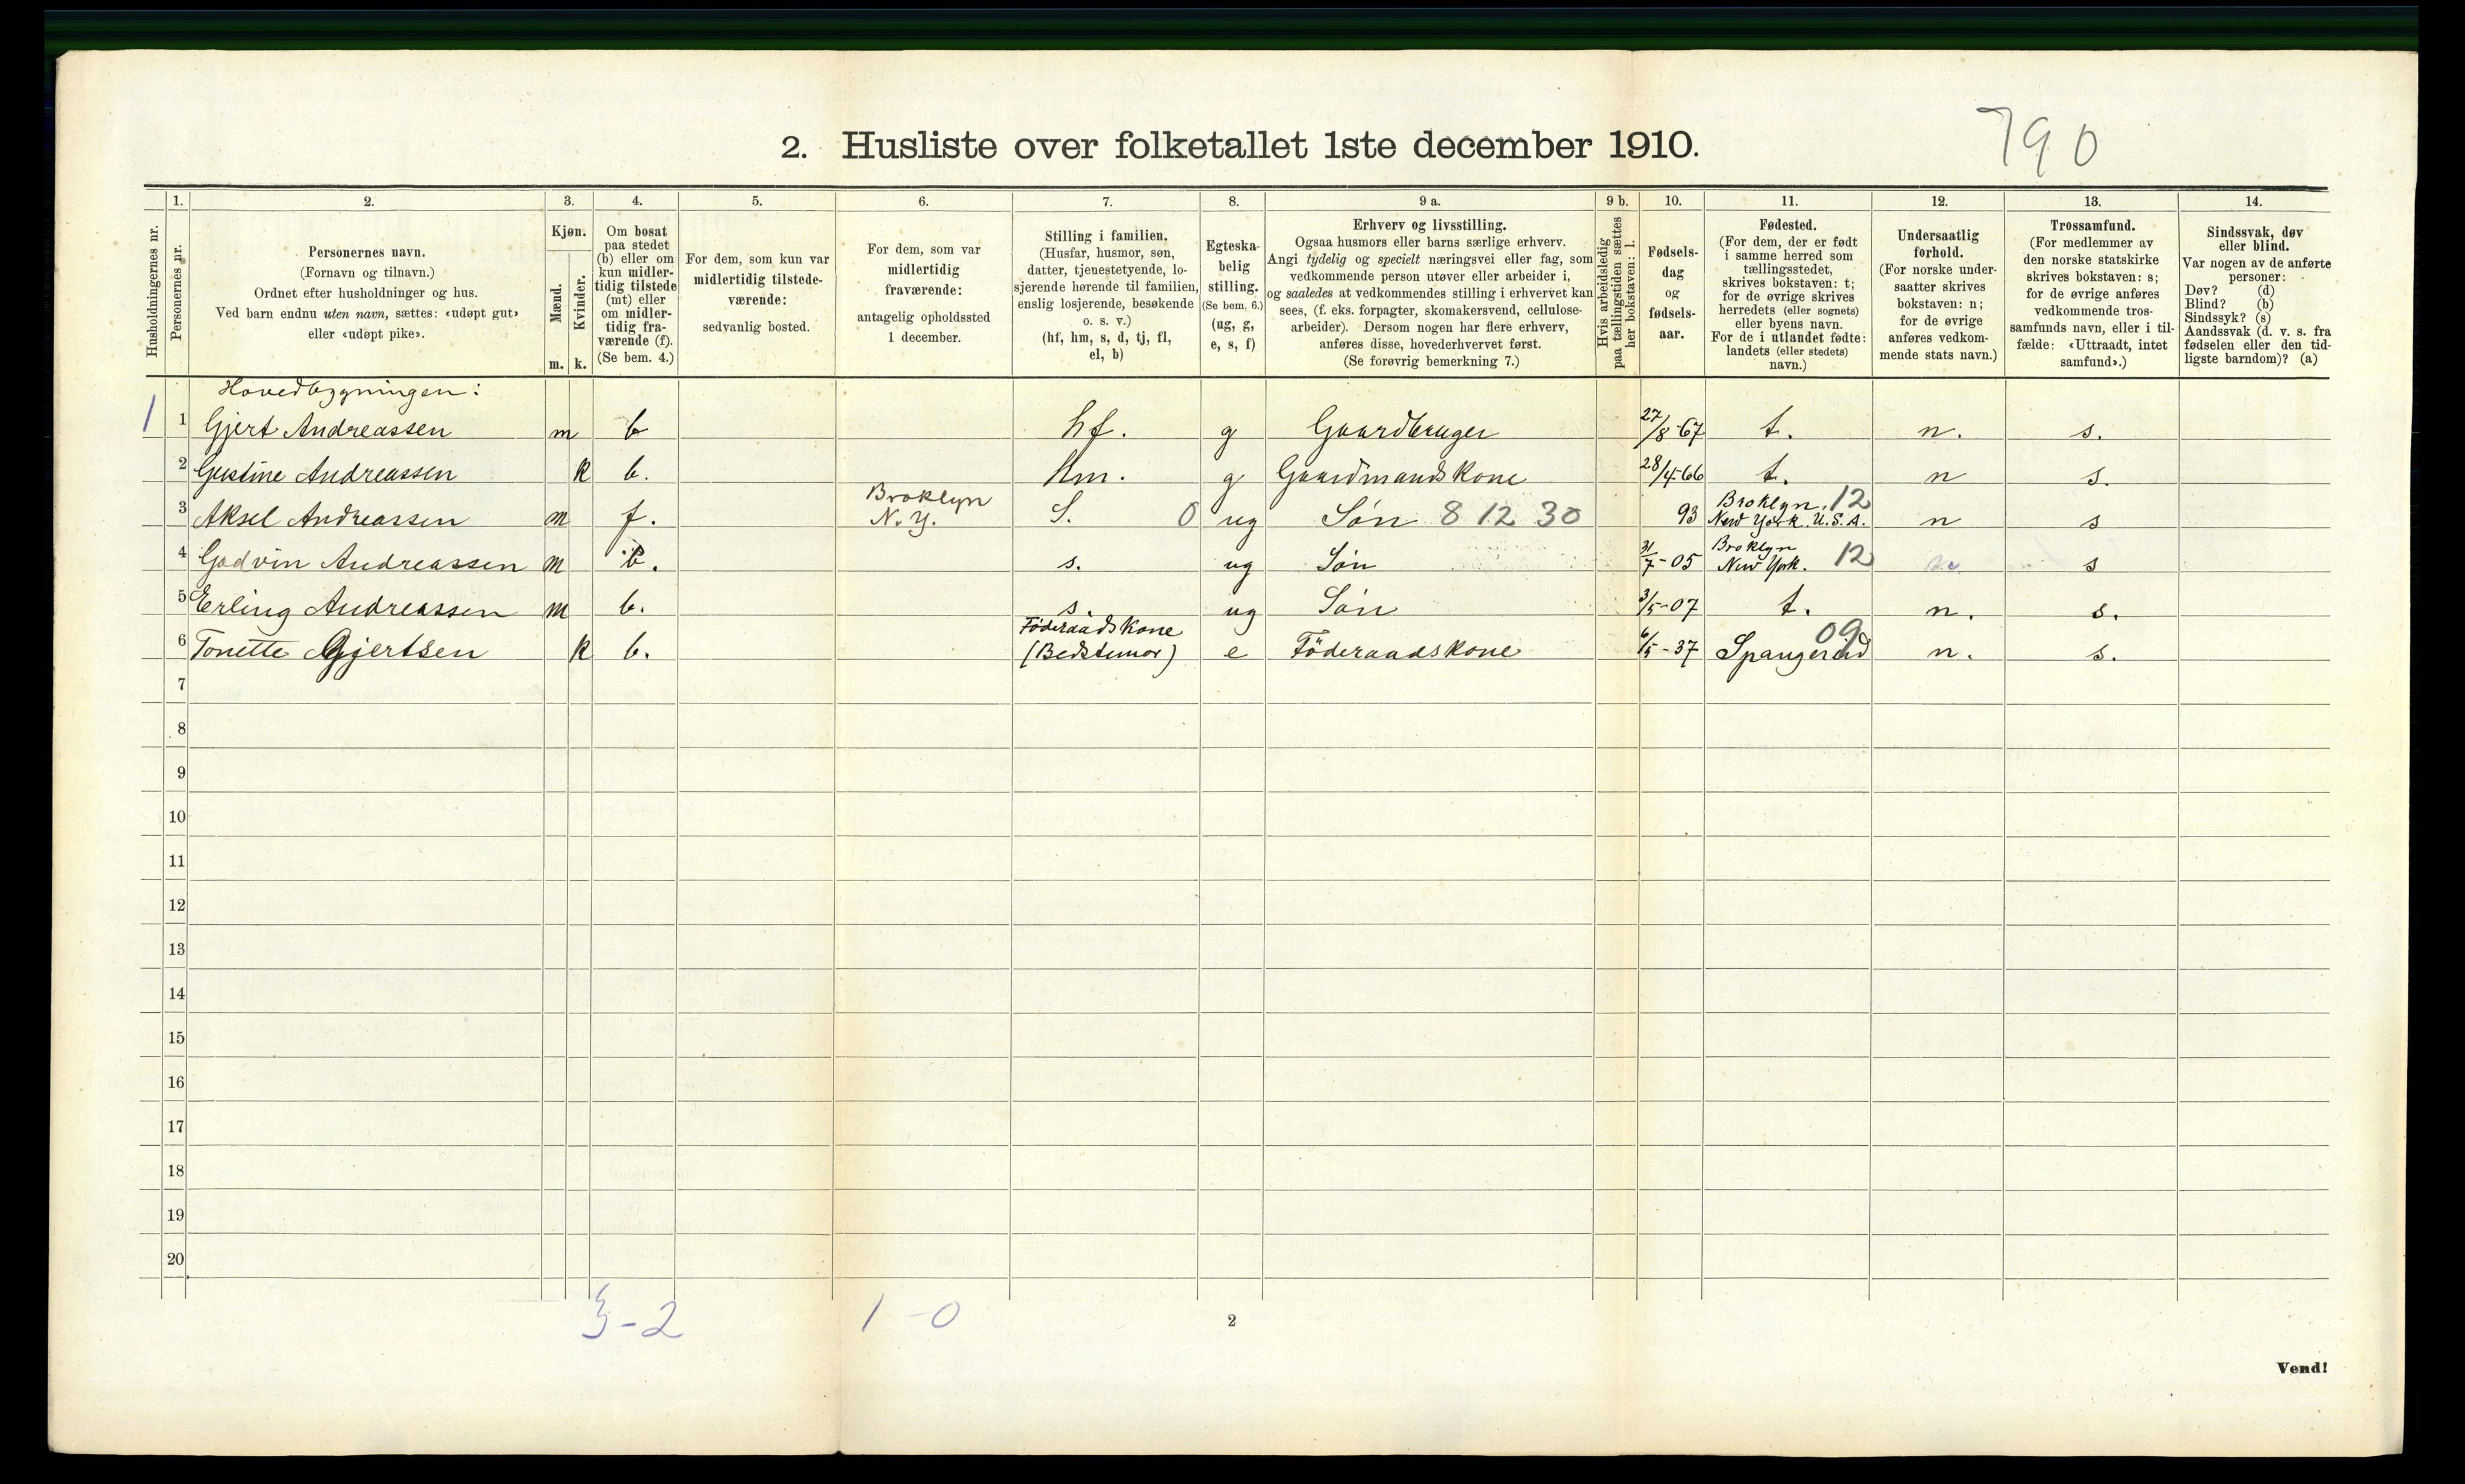 790
2. Husliste over folketallet 1ste december 1910.
Husholdningernes nr.
1.
Personernes nr.
2.
Personernes navn.
(Fornavn og tilnavn.)
Ordnet efter husholdninger og hus.
Ved barn endnu uten navn, sættes: «udøpt gut»
eller «udøpt pike».
3.
Kjøn.
Mænd.
Kvinder.
m. k.
4.
Om bosat
paa stedet
(b) eller om
kun midler-
tidig tilstede
(mt) eller
om midler-
tidig fra-
værende (f).
(Se bem. 4.)
5.
For dem, som kun var
midlertidig tilstede-
værende:
sedvanlig bosted.
6.
For dem, som var
midlertidig
fraværende:
antagelig opholdssted
1 december.
7.
Stilling i familien.
(Husfar, husmor, søn,
datter, tjenestetyende, lo-
sjerende hørende til familien,
enslig losjerende, besøkende
o. s. v.)
(hf, hm, s, d, tj, fl,
el, b)
8.
Egteska-
belig
stilling.
(Se bem. 6.)
(ug, g,
e, s, f)
9 a.
Erhverv og livsstilling.
Ogsaa husmors eller barns særlige erhverv.
Angi tydelig og specielt næringsvei eller fag, som
vedkommende person utøver eller arbeider i,
og saaledes at vedkommendes stilling i erhvervet kan
sees, (f. eks. forpagter, skomakersvend, cellulose-
arbeider). Dersom nogen har flere erhverv,
anføres disse, hovederhvervet først.
(Se forøvrig bemerkning 7.)
9 b.
Hvis arbeidsledig
paa tællingstiden sættes
her bokstaven: l.
10.
Fødsels-
dag
og
fødsels-
aar.
11.
Fødested.
(For dem, der er født
i samme herred som
tællingsstedet,
skrives bokstaven: t;
for de øvrige skrives
herredets (eller sognets)
eller byens navn.
For de i utlandet fødte:
landets (eller stedets)
navn.)
12.
Undersaatlig
forhold.
(For norske under-
saatter skrives
bokstaven: n;
for de øvrige
anføres vedkom-
mende stats navn.)
13.
Trossamfund.
(For medlemmer av
den norske statskirke
skrives bokstaven: s;
for de øvrige anføres
vedkommende tros-
samfunds navn, eller i til-
fælde: «Uttraadt, intet
samfund».)
14.
Sindssvak, døv
eller blind.
Var nogen av de anførte
personer:
Døv? (d)
Blind? (b)
Sindssyk? (s)
Aandssvak (d. v. s. fra
fødselen eller den tid-
ligste barndom)? (a)
Hovedbygningen:
1 1 Gjert Andreassen m b hf. g Gaardbruger 27/8-67 t. n. s.
2 Gustine Andreassen k b. Hm. g Gaardmandskone 28/4-66 t. n s.
3 Aksel Andreassen m f. Broklyn N.Y. S. 0 ug Søn 8 12 30 93 Broklyn, 12 New York. U.S.A. n s
4 Godvin Andreassen m b. s. ug Søn 31/7-05 Broklyn New York. 12 s
5 Erling Andreassen m b. s. ug Søn 3/5-07 t. n. s.
6 Tonette Gjertsen k b. Föderaadskone (Bedstemor) e Föderaadskone 6/5-37 Spangereid 09 n. s.
7
8
9
10
11
12
13
14
15
16
17
18
19
20
3-2 1-0
2
Vend!